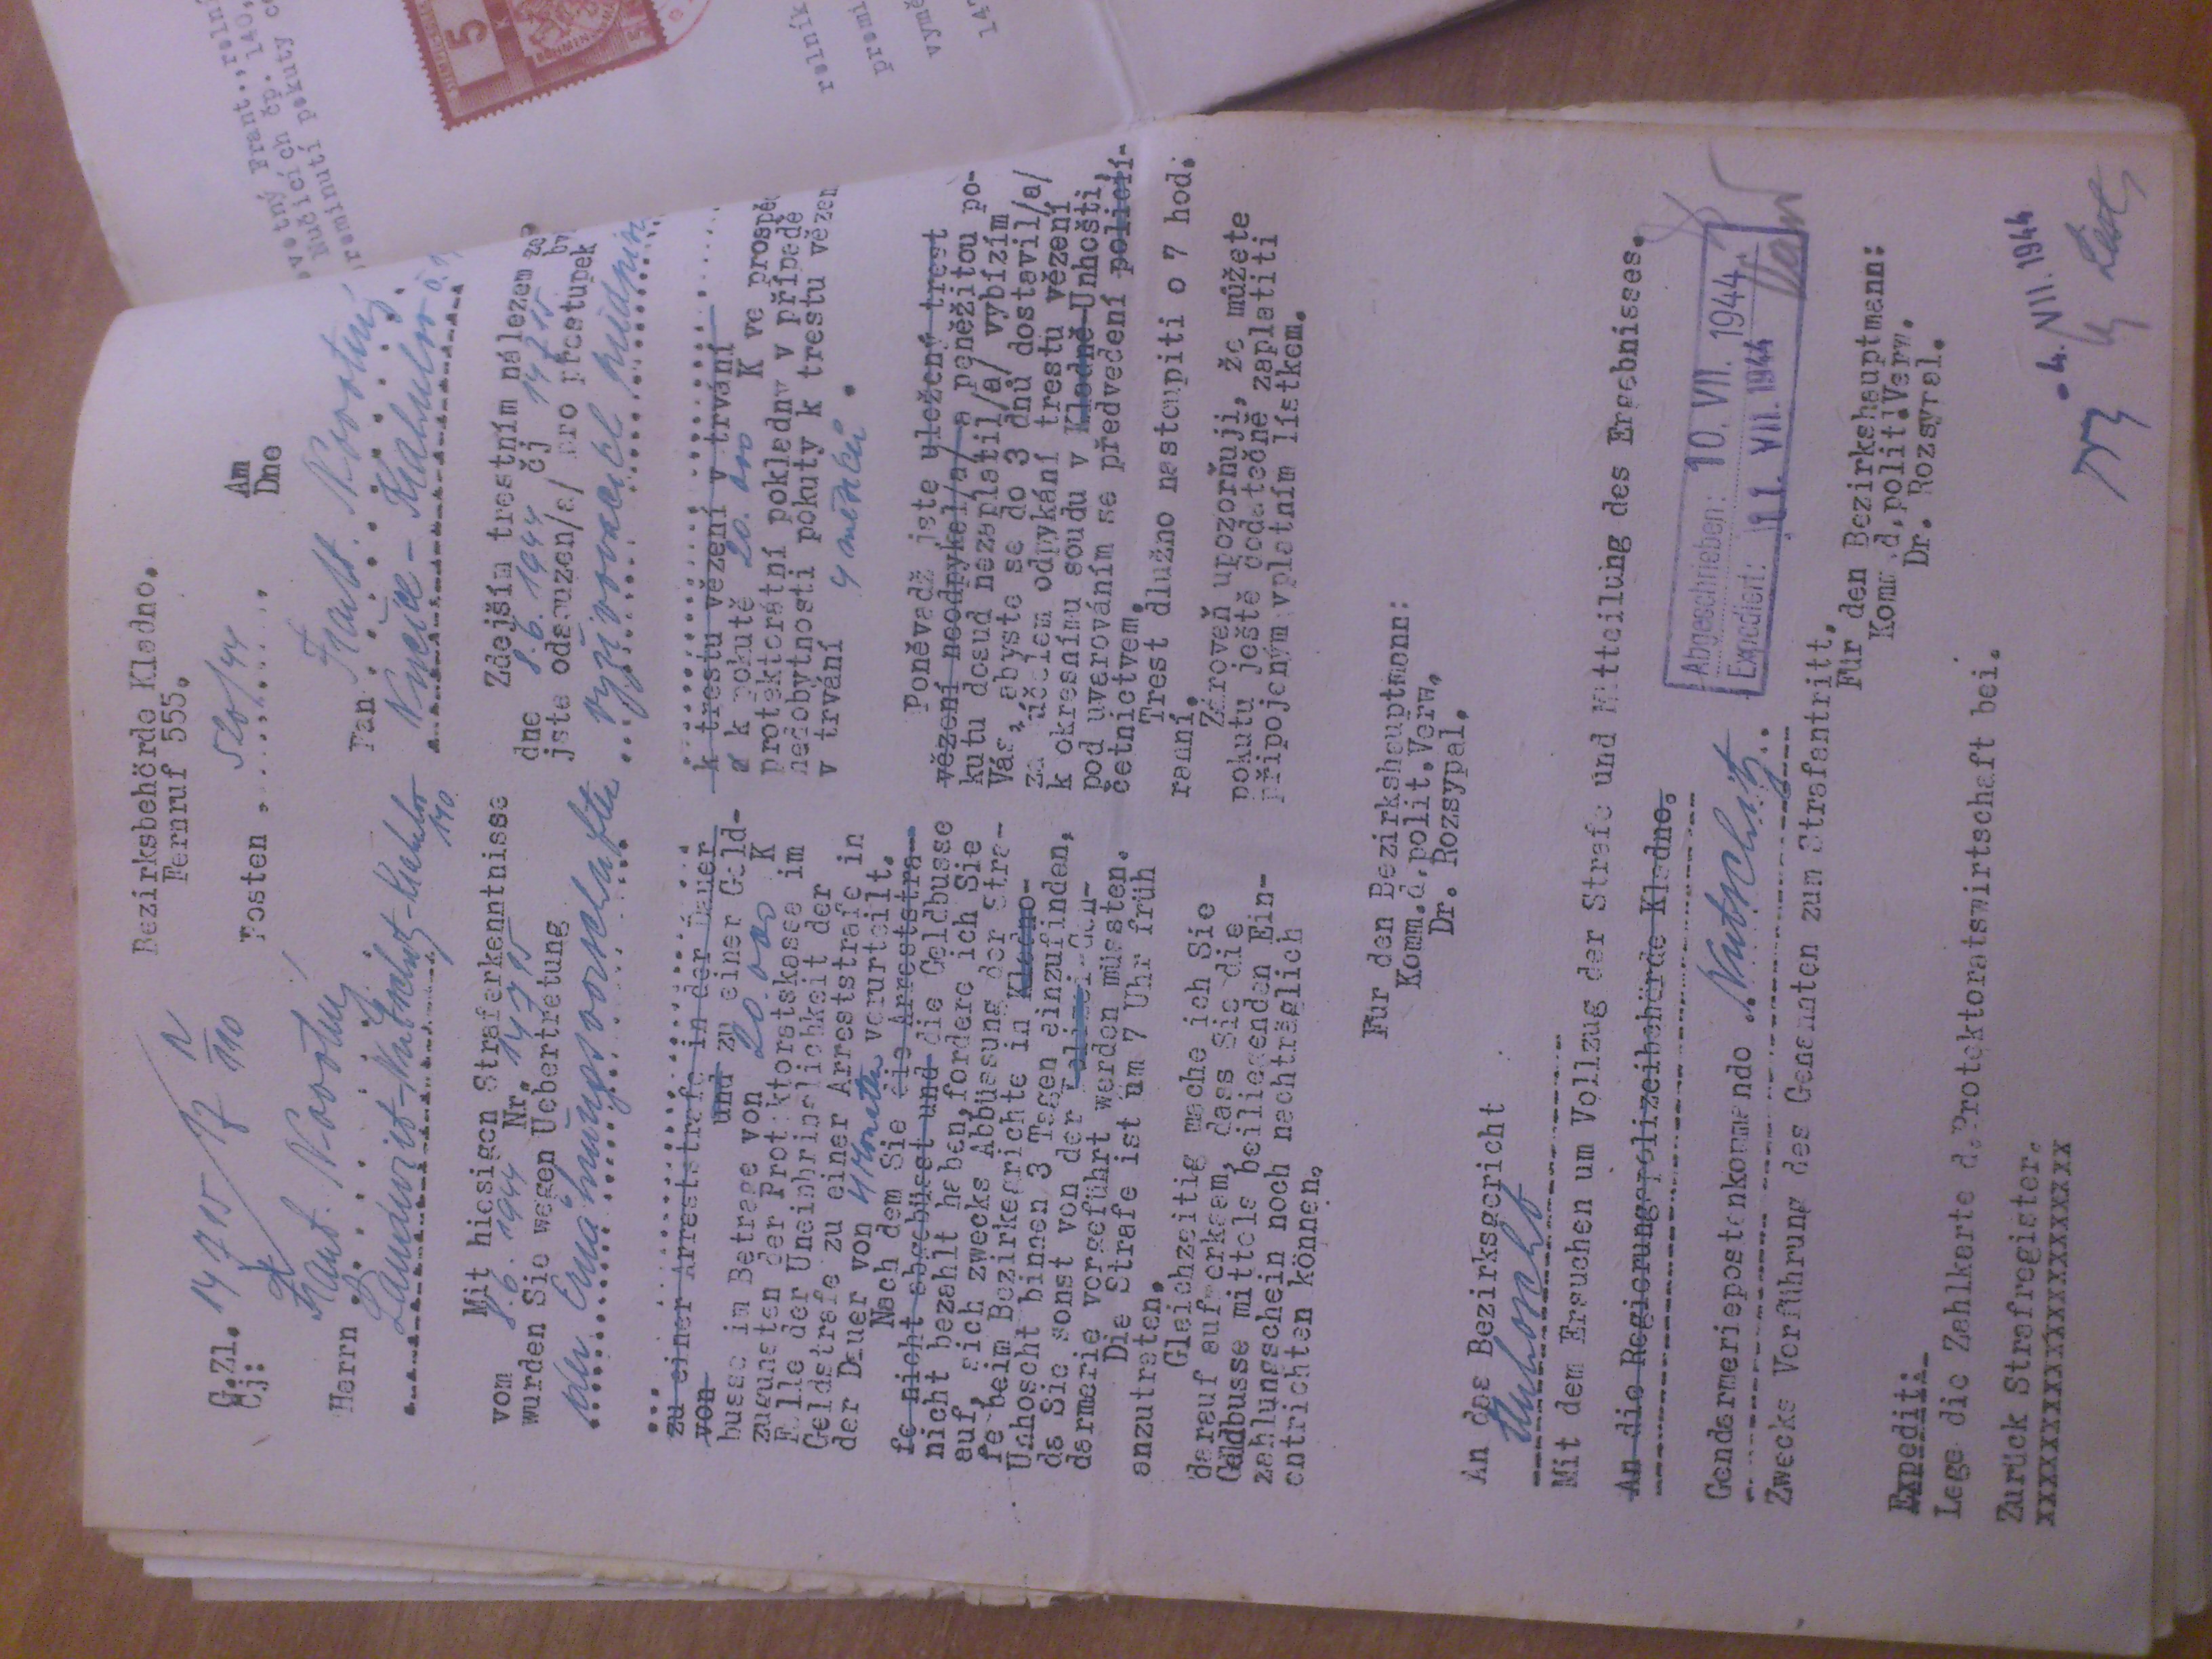 Bezirksbehörde Kladno.
Fernruf 555.
G.Zl. 14715/17 N/110
Čj:
Posten 520/44
Am
Dne
Herrn Frant. Novotný
Landwirt-Nutschitz-Krahulov
140.
Pan Frant. Novotný
Nučice - Krahulov č.
Mit hiesigen Straferkenntnisse
vom 8.6. 1944 Nr. 14715
wurden Sie wegen Uebertretung
der Ernährungsvorschriften
zu einer Arreststrafe in der Dauer
von und zu einer Geld-
busse im Betrage von 20.000 K
zugunsten der Protektoratskasse im
Falle der Uneinbringlichkeit der
Geldstrafe zu einer Arreststrafe in
der Dauer von 4 Monaten verurteilt.
Nach dem Sie die Arreststra-
fe nicht abgebüsst und die Geldbusse
nicht bezahlt haben, fordere ich Sie
auf, sich zwecks Abbüssung der Stra-
fe beim Bezirksgrichte in Kladno-
Unhoscht binnen 3 Tagen einzufinden,
da Sie sonst von der Polizei-Gen-
darmerie vorgeführt werden müssten.
Die Strafe ist um 7 Uhr früh
anzutreten.
Gleichzeitig mache ich Sie
darauf aufmerksam, dass Sie die
Geldbusse mittels beiliegenden Ein-
zahlungschein noch nachträglich
entrichten können.
Zdejším trestním nálezem ze
dne 8.6. 1944 čj 14715 by
jste odsouzen/a/ pro přestupek
vyživovacích předpisů
k trestu vězení v trvání
a k pokutě 20.000 K ve prospě
protektorátní pokladny v případě
nedobytnosti pokuty k trestu vězen
v trvání 4 měsíců.
Poněvadž jste uložený trest
vězení neodpykal/a/ a peněžitou po-
kutu dosud nezaplatil/a/ vybízím
Vás, abyste se do 3 dnů dostavil/a/
za účelem odpykání trestu vězení
k okresnímu soudu v Kladně-Unhošti,
pod uvarováním se předvedení policií-
četnictvem.
Trest dlužno nastoupiti o 7 hod.
ranní.
Zároveň upozorňuji, že můžete
pokutu ještě dodatečně zaplatiti
připojeným vplatním lístkem.
Für den Bezirkshauptmann:
Komm.d.polit.Verw.
Dr. Rozsypal.
An das Bezirksgericht
Unhoscht
Mit dem Ersuchen um Vollzug der Strafe und Mitteilung des Ergebnisses.
An die Regierungspolizeibehörde Kladno.
Gendarmeriepostenkommando Nutschitz
Zwecks Vorführung des Genannten zum Strafantritt.
Abgeschrieben: 10. VII. 1944
Expediert: 11. VII. 1944
Für den Bezirkshauptmann:
Komm.d.polit.Verw.
Dr. Rozsypal.
Expedit:
Lege die Zahlkarte d.Protektoratswirtschaft bei.
Zurück Strafregister.
xxxxxxxxxxxxxxxxxxxxx
-4. VII. 1944
ovotný Frant.,rolní
Nučicích čp. 140,
prominutí pokuty
5
K
rolník
promi
vymě
147